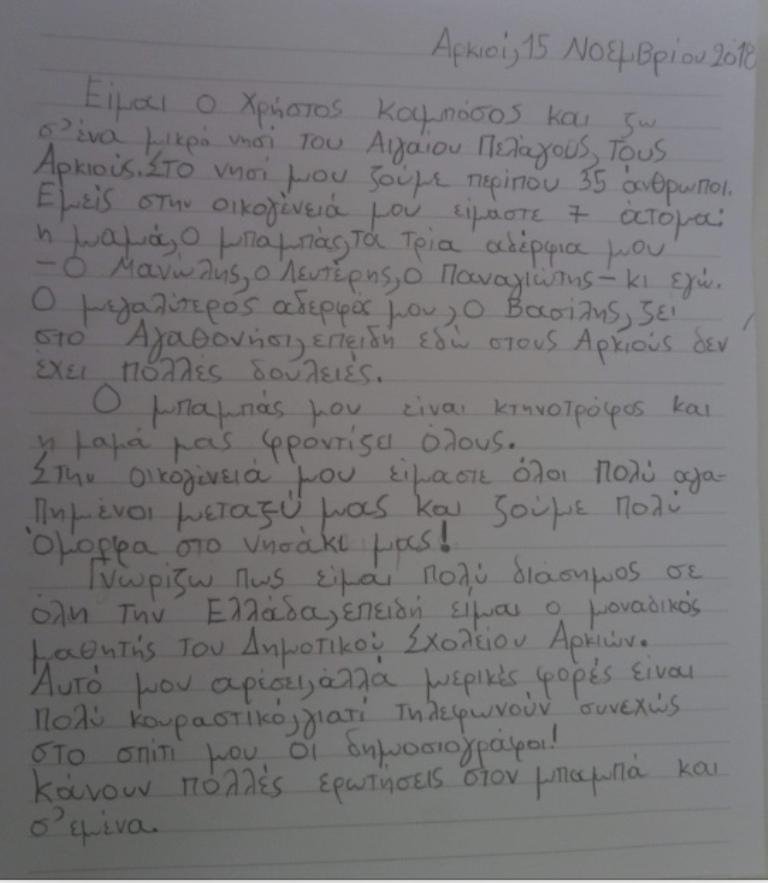 Αρκιοί, 15 Νοεμβρίου 2018
Είμαι ο Χρήστος Καμπόσος και ζω
σ' ένα μικρό νησί του Αιγαίου Πελάγους, τους
Αρκιούς. Στο νησί μου ζούμε περίπου 35 άνθρωποι.
Εμείς στην οικογένειά μου είμαστε 7 άτομα:
η μαμά, ο μπαμπάς, τα τρία αδέρφια μου
- ο Μανώλης, ο Λευτέρης, ο Παναγιώτης - κι εγώ.
Ο μεγαλύτερος αδερφός μου, ο Βασίλης, ζει
στο Αγαθονήσι, επειδή εδώ στους Αρκιούς δεν
έχει πολλές δουλειές.
Ο μπαμπάς μου είναι κτηνοτρόφος και
η μαμά μας φροντίζει όλους.
Στην οικογένειά μου είμαστε όλοι πολύ αγα-
πημένοι μεταξύ μας και ζούμε πολύ
όμορφα στο νησάκι μας!
Γνωρίζω πως είμαι πολύ διάσημος σε
όλη την Ελλάδα, επειδή είμαι ο μοναδικός
μαθητής του Δημοτικού Σχολείου Αρκιών.
Αυτό μου αρέσει, αλλά μερικές φορές είναι
πολύ κουραστικό, γιατί τηλεφωνούν συνεχώς
στο σπίτι μου οι δημοσιογράφοι!
Κάνουν πολλές ερωτήσεις στον μπαμπά και
σ' εμένα.